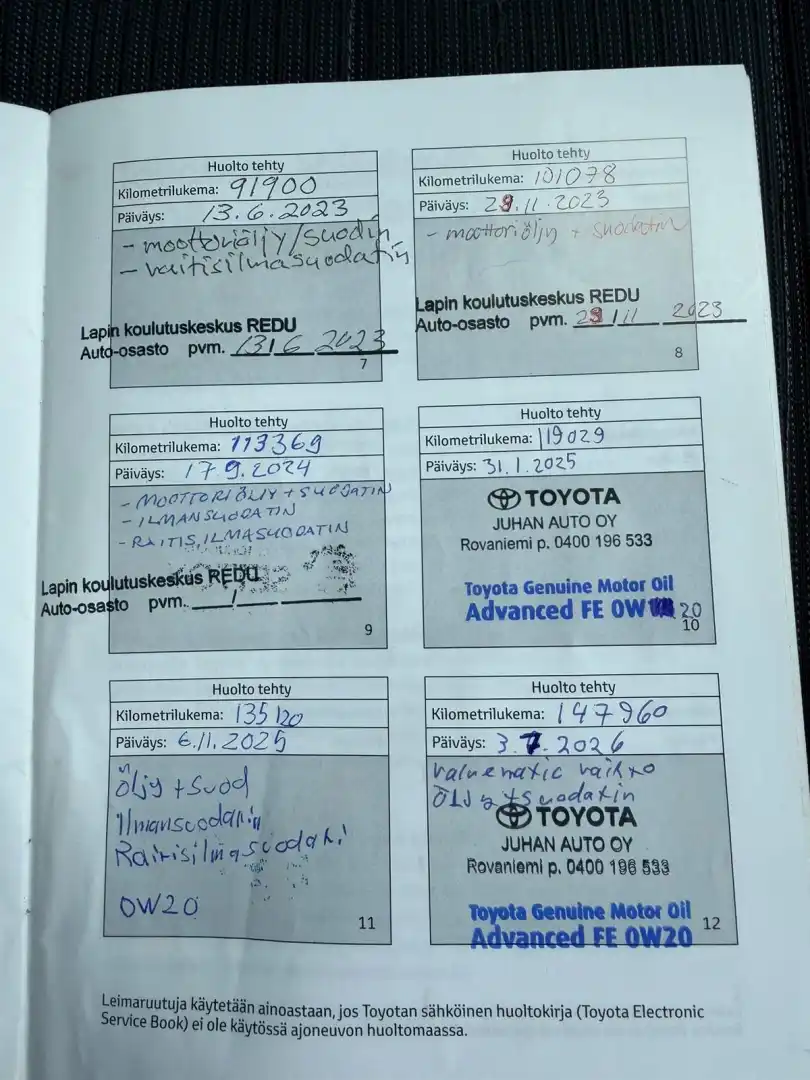 Huolto tehty
Kilometrilukema: 91900
Päiväys: 13.6.2023
- moottoriöljy/suodin
- raitisilmasuodatin
Lapin koulutuskeskus REDU
Auto-osasto pvm. 13/6 2023
7
Huolto tehty
Kilometrilukema: 101078
Päiväys: 29.11.2023
- moottoriöljy + suodatin
Lapin koulutuskeskus REDU
Auto-osasto pvm. 29/11 2023
8
Huolto tehty
Kilometrilukema: 113369
Päiväys: 17.9.2024
- MOOTTORIÖLJY + SUODATIN
- ILMANSUODATIN
- RAITIS,ILMASUODATIN
Lapin koulutuskeskus REDU
Auto-osasto pvm. /
9
Huolto tehty
Kilometrilukema: 119029
Päiväys: 31.1.2025
TOYOTA
JUHAN AUTO OY
Rovaniemi p. 0400 196 533
Toyota Genuine Motor Oil
Advanced FE 0W 20
10
Huolto tehty
Kilometrilukema: 135120
Päiväys: 6.11.2025
Öljy + suod
Ilmansuodatin
Raitisilmasuodati
0W20
11
Huolto tehty
Kilometrilukema: 147960
Päiväys: 3.7.2026
valvematic vaihto
ÖLJy + suodatin
TOYOTA
JUHAN AUTO OY
Rovaniemi p. 0400 196 533
Toyota Genuine Motor Oil
Advanced FE 0W20
12
Leimaruutuja käytetään ainoastaan, jos Toyotan sähköinen huoltokirja (Toyota Electronic
Service Book) ei ole käytössä ajoneuvon huoltomaassa.